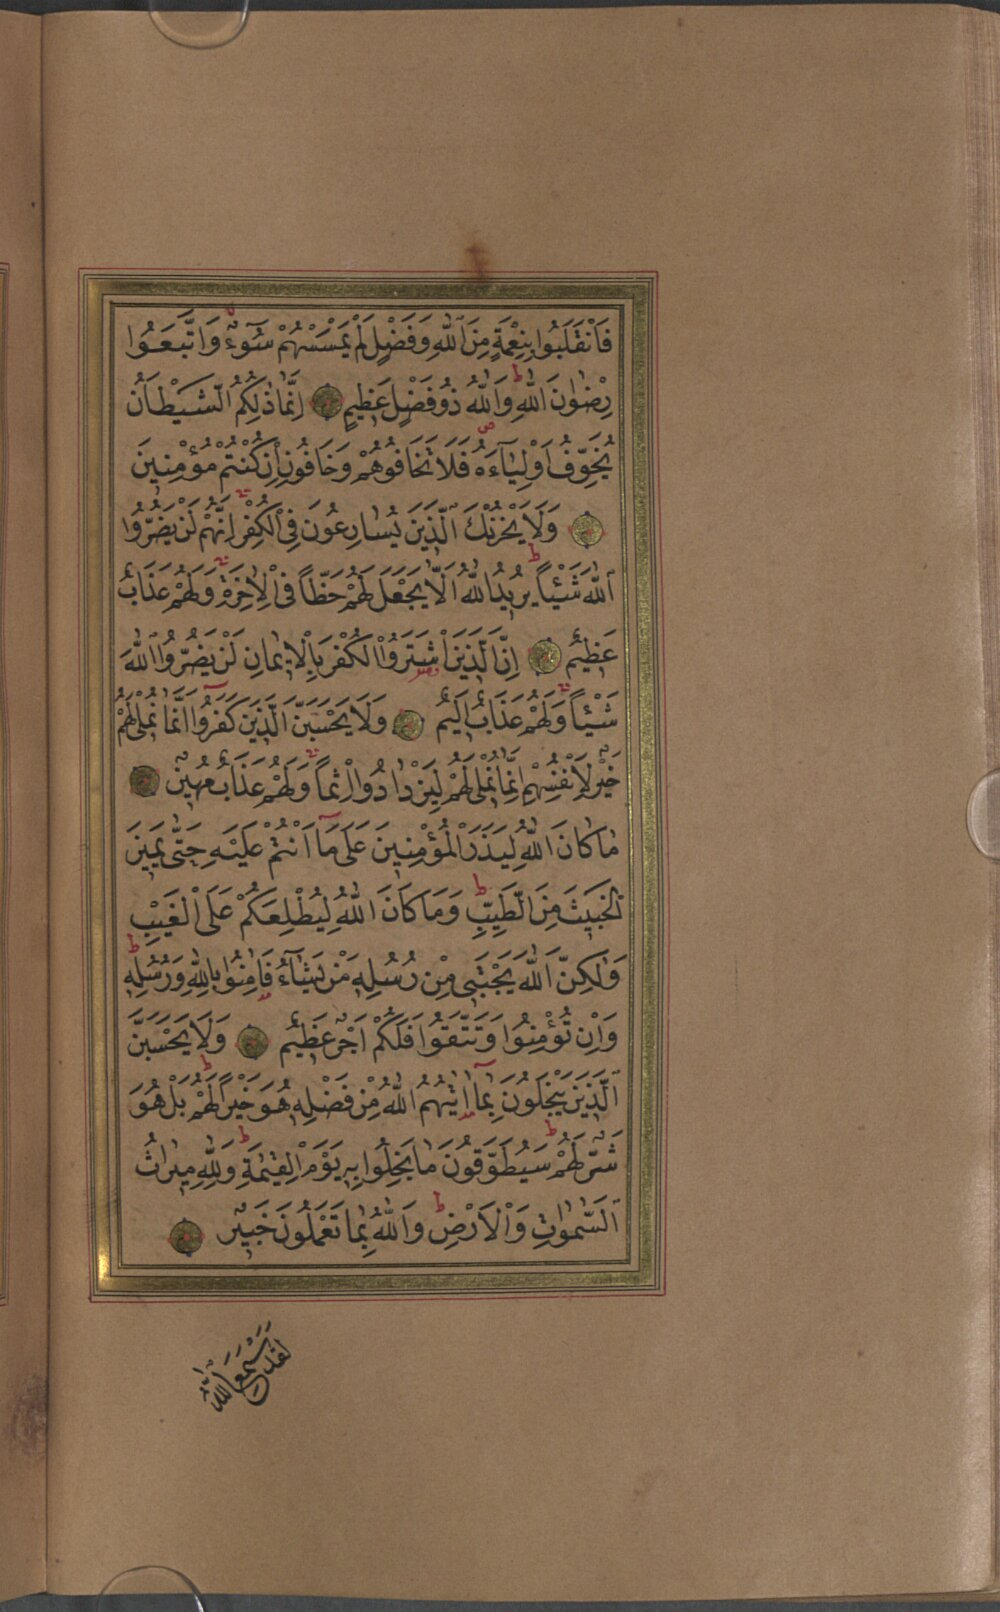 فَانْقَلَبُوا بِنِعْمَةٍ مِنَ اللّٰهِ وَفَضْلٍ لَمْ يَمْسَسْهُمْ سُٓوءٌ وَاتَّبَعُوا
رِضْوٰنَ اللّٰهِ وَاللّٰهُ ذُو فَضْلٍ عَظِيمٍ اِنَّمَا ذٰلِكُمُ الشَّيْطَانُ
يُخَوِّفُ اَوْلِيَٓاءَهُ فَلَا تَخَافُوهُمْ وَخَافُونِ اِنْ كُنْتُمْ مُؤْمِنِينَ
وَلَا يَحْزُنْكَ الَّذِينَ يُسَارِعُونَ فِي الْكُفْرِ اِنَّهُمْ لَنْ يَضُرُّوا
اللّٰهَ شَيْـًٔا يُرِيدُ اللّٰهُ اَلَّا يَجْعَلَ لَهُمْ حَظًّا فِي الْاٰخِرَةِ وَلَهُمْ عَذَابٌ
عَظِيمٌ اِنَّ الَّذِينَ اشْتَرَوُا الْكُفْرَ بِالْاِيمَانِ لَنْ يَضُرُّوا اللّٰهَ
شَيْـًٔا وَلَهُمْ عَذَابٌ اَلِيمٌ وَلَا يَحْسَبَنَّ الَّذِينَ كَفَرُٓوا اَنَّمَا نُمْلِي لَهُمْ
خَيْرٌ لِاَنْفُسِهِمْ اِنَّمَا نُمْلِي لَهُمْ لِيَزْدَادُٓوا اِثْمًا وَلَهُمْ عَذَابٌ مُهِينٌ
مَا كَانَ اللّٰهُ لِيَذَرَ الْمُؤْمِنِينَ عَلٰى مَٓا اَنْتُمْ عَلَيْهِ حَتّٰى يَمِيزَ
الْخَبِيثَ مِنَ الطَّيِّبِ وَمَا كَانَ اللّٰهُ لِيُطْلِعَكُمْ عَلَى الْغَيْبِ
وَلٰكِنَّ اللّٰهَ يَجْتَبِي مِنْ رُسُلِهِ مَنْ يَشَٓاءُ فَاٰمِنُوا بِاللّٰهِ وَرُسُلِهِ
وَاِنْ تُؤْمِنُوا وَتَتَّقُوا فَلَكُمْ اَجْرٌ عَظِيمٌ وَلَا يَحْسَبَنَّ
الَّذِينَ يَبْخَلُونَ بِمَٓا اٰتٰيهُمُ اللّٰهُ مِنْ فَضْلِهِ هُوَ خَيْرًا لَهُمْ بَلْ هُوَ
شَرٌّ لَهُمْ سَيُطَوَّقُونَ مَا بَخِلُوا بِهِ يَوْمَ الْقِيٰمَةِ وَلِلّٰهِ مِيرَاثُ
السَّمٰوَاتِ وَالْاَرْضِ وَاللّٰهُ بِمَا تَعْمَلُونَ خَبِيرٌ
لَقَدْ سَمِعَ اللّٰهُ